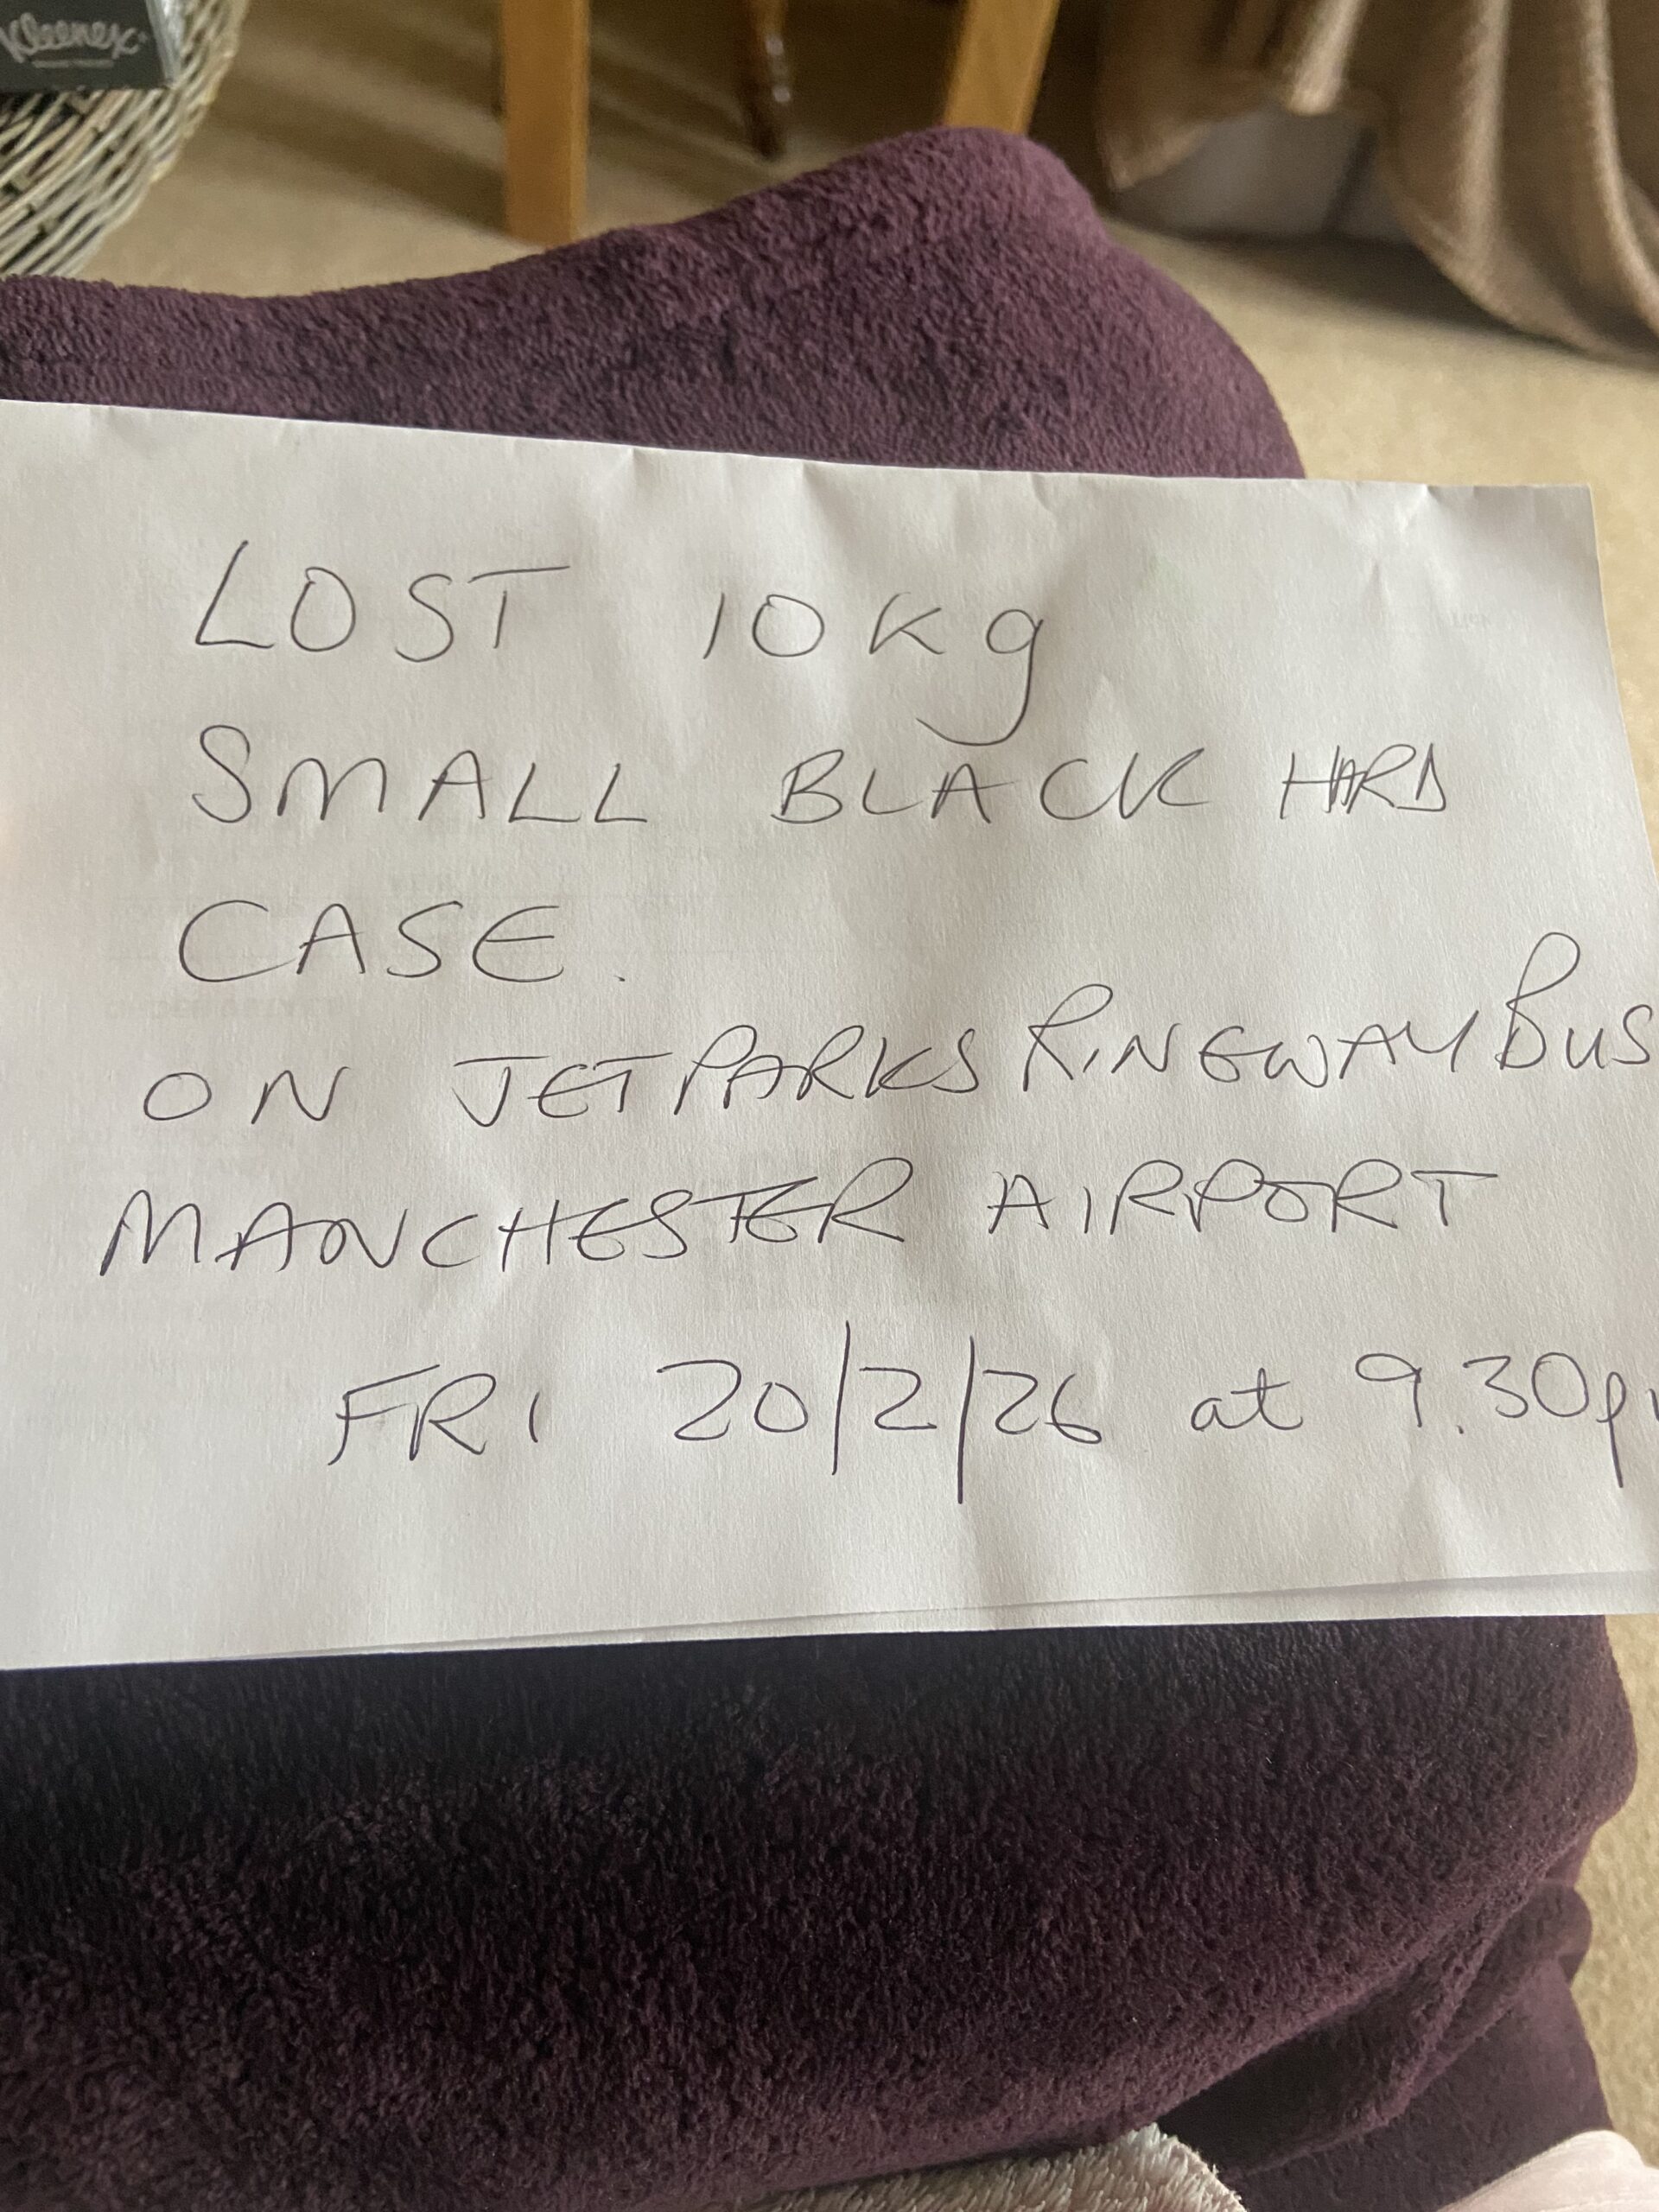 Kleenex
LOST 10Kg
SMALL BLACK HARD
CASE.
ON JETPARKS RINGWAY BUS
MANCHESTER AIRPORT
FRI 20/2/26 at 9.30p